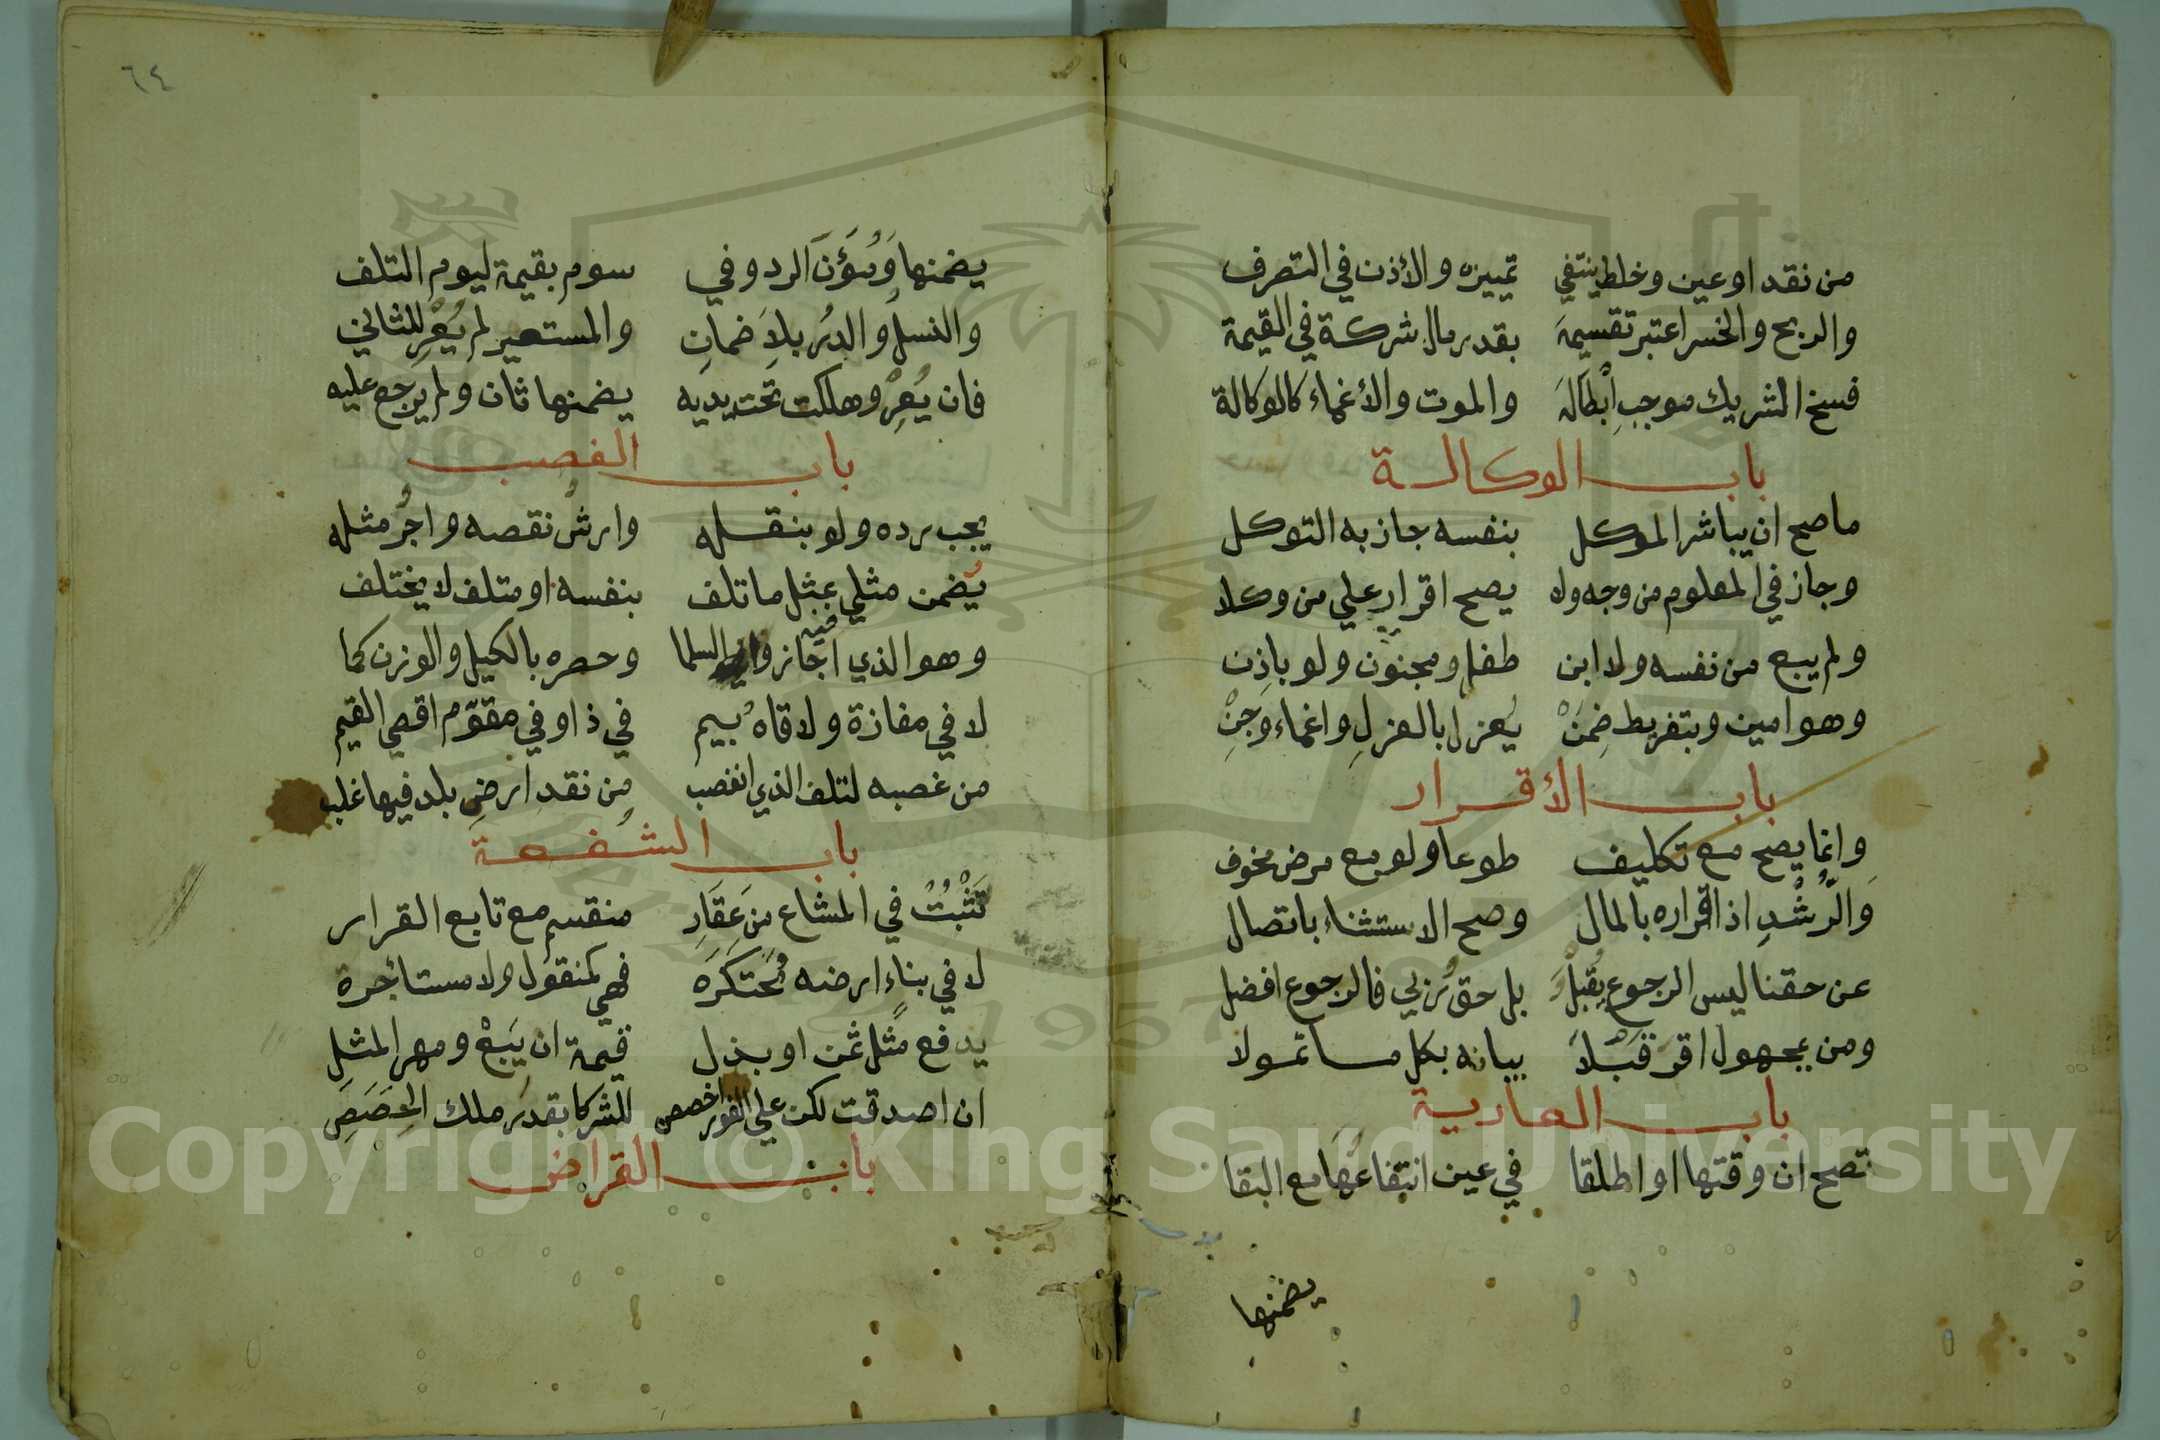 من نقد او عين وخلط ينتفي تمييزه والأذن في التصرف
والربح والخسر اعتبر تقسيمه بقدر مال شركة في القيمة
فسخ الشريك موجب ابطاله والموت والأغماء كالوكالة
باب الوكالة
ما صح ان يباشر الموكل بنفسه جاز به التوكل
وجاز في المعلوم من وجه ولا يصح اقرار علي من وكلا
ولم يبع من نفسه ولا ابن طفل ومجنون ولو باذن
وهو امين وبتفريط ضِمَنْ يُعزل بالعزلِ واغماء وَجِنْ
باب الأقرار
وانما يصح مع تكليف طوعا ولو مع مرض مخوف
وَالرُّشْدِ اذ اقراره بالمال وصح الاستثناء باتصال
عن حقنا ليس الرجوع يُقبلْ بل حق ربي فالرجوع افضل
ومن بمجهول اقر قبلا بيانه بكل ما تمولا
باب العارية
تصح ان وقتها او اطلقا في عين انتفاعها مع البقا
يضمنها
٦٤
يضمنها وَمُؤَنَ الرد وفي سوم بقيمة ليوم التلف
والنسل والدر بلا ضمان والمستعير لم يُعْرِ للثاني
فان يُعِرْ وهلكت تحت يديه يضمنها ثان ولم يرجع عليه
باب الغصب
يجب رده ولو بنقله وارشُ نقصه واجرُ مثله
يُضمن مثلي بمثل ما تلف بنفسه او متلف لا يختلف
وهو الذي اجاز فيه السلما وحصره بالكيل والوزن كما
لا في مفازة ولاقاه بيم في ذا وفي مقوّم اقصي القيم
من غصبه لتلف الذي انغصب من نقد ارض بلد فيها غلب
باب الشفعة
تَثْبُتُ في المشاع من عَقَارِ منقسم مع تابع القرار
لا في بناء ارضه مُحتكَرَه فهي كمنقول ولا مستأجرة
يدفع مثل ثمن او بذل قيمة ان يَبعْ ومهر المثلِ
ان اصدقت لكن علي الفور اخصص للشركا بقدر ملك الحِصَصِ
باب القراض
Copyright © King Saud University
1957